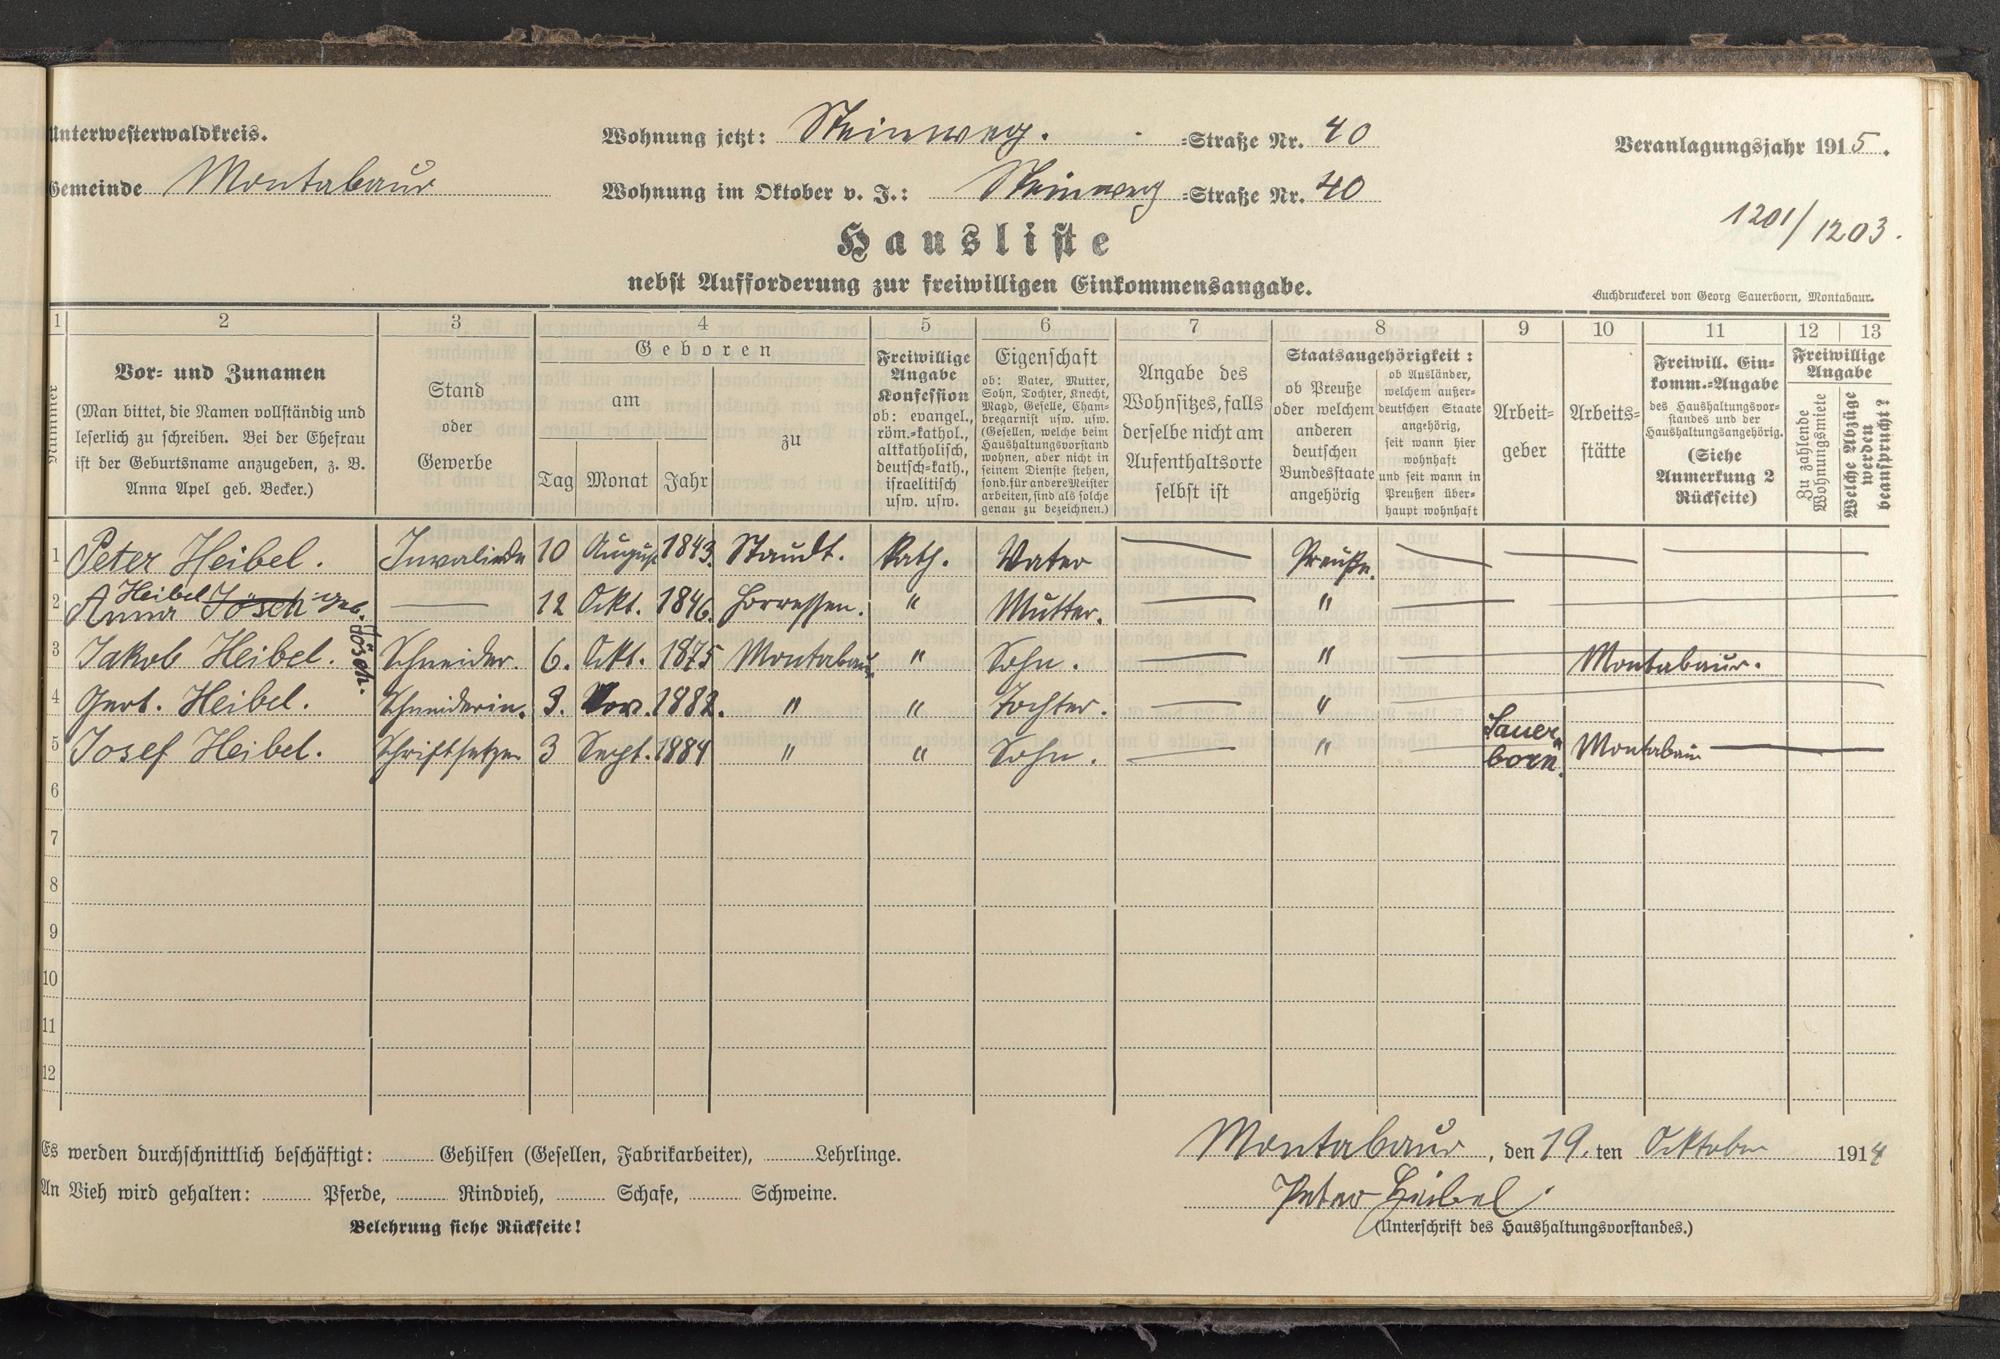 Unterwesterwaldkreis.
Gemeinde Montabaur
Wohnung jetzt: Steinweg. -Straße Nr. 40
Wohnung im Oktober v. J.: Steinweg -Straße Nr. 40
Veranlagungsjahr 1915.
1201/1203.
Hausliste
nebst Aufforderung zur freiwilligen Einkommensangabe.
Buchdruckerei von Georg Sauerborn, Montabaur.
1 2 3 4 5 6 7 8 9 10 11 12 13
Nummer
Vor- und Zunamen
(Man bittet, die Namen vollständig und
leserlich zu schreiben. Bei der Ehefrau
ist der Geburtsname anzugeben, z. B.
Anna Apel geb. Becker.)
Stand
oder
Gewerbe
Geboren
am
Tag Monat Jahr
zu
Freiwillige
Angabe
Konfession
ob: evangel.,
röm.-kathol.,
altkatholisch,
deutsch-kath.,
israelitisch
usw. usw.
Eigenschaft
ob: Vater, Mutter,
Sohn, Tochter, Knecht,
Magd, Geselle, Cham-
bregarnist usw. usw.
(Gesellen, welche beim
Haushaltungsvorstand
wohnen, aber nicht in
seinem Dienste stehen,
sond. für andere Meister
arbeiten, sind als solche
genau zu bezeichnen.)
Angabe des
Wohnsitzes, falls
derselbe nicht am
Aufenthaltsorte
selbst ist
Staatsangehörigkeit:
ob Preuße
oder welchem
anderen
deutschen
Bundesstaate
angehörig
ob Ausländer,
welchem außer-
deutschen Staate
angehörig,
seit wann hier
wohnhaft
und seit wann in
Preußen über-
haupt wohnhaft
Arbeit-
geber
Arbeits-
stätte
Freiwill. Ein-
komm.-Angabe
des Haushaltungsvor-
standes und der
Haushaltungsangehörig.
(Siehe
Anmerkung 2
Rückseite)
Freiwillige
Angabe
Zu zahlende
Wohnungsmiete
Welche Abzüge
werden
beansprucht?
1 Peter Heibel. Invaliede 10 August 1843. Staudt. Kath. Vater Preuße.
2 Anna Heibel Jösch geb. Jösch. 12 Okt. 1846. Horressen. " Mutter. "
3 Jakob Heibel. Schneider. 6. Okt. 1875 Montabaur " Sohn. " Montabaur.
4 Gert. Heibel. Schneiderin. 3. Nov. 1882. " " Tochter. "
5 Josef Heibel. Schriftsetzer 3 Sept. 1884 " " Sohn. " Sauer-
born. Montabaur
6
7
8
9
10
11
12
Es werden durchschnittlich beschäftigt: Gehilfen (Gesellen, Fabrikarbeiter), Lehrlinge.
An Vieh wird gehalten: Pferde, Rindvieh, Schafe, Schweine.
Belehrung siehe Rückseite!
Montabaur, den 19. ten Oktober 1914
Peter Heibel.
(Unterschrift des Haushaltungsvorstandes.)